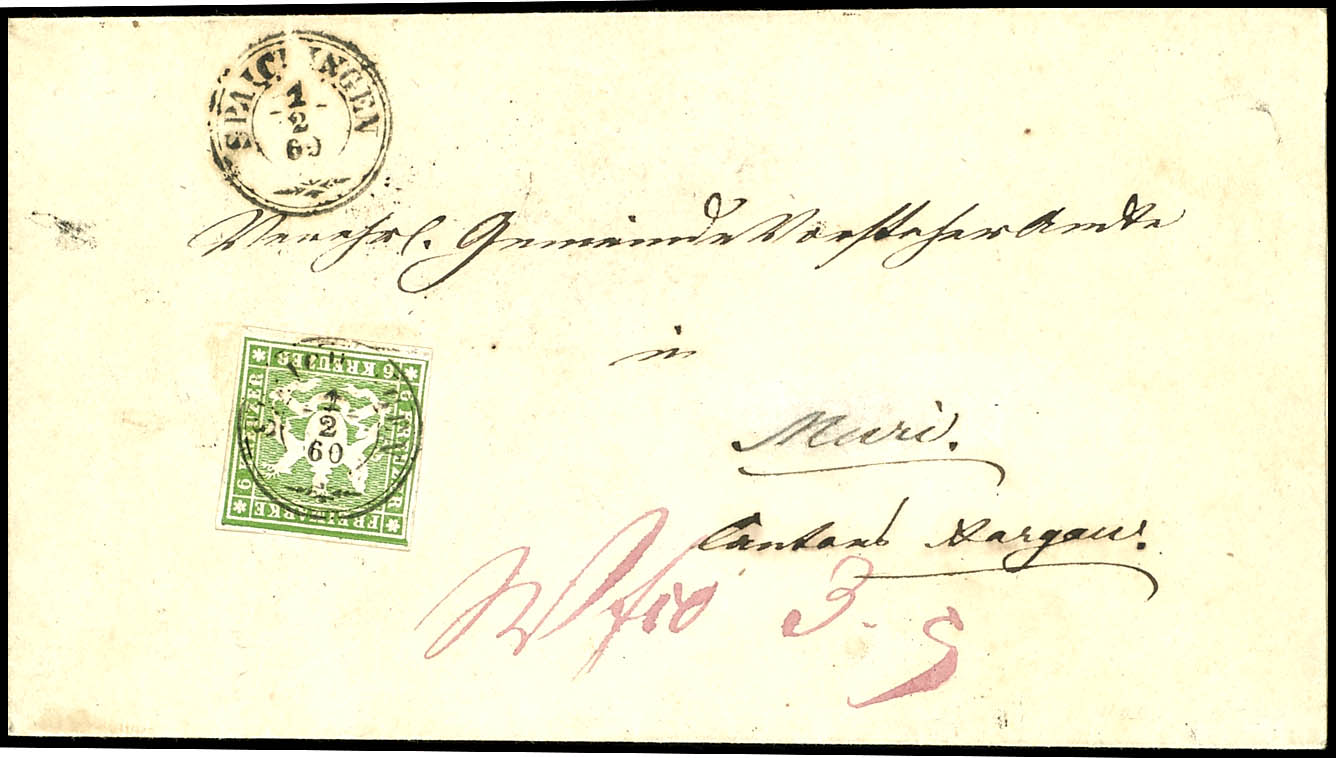 SPAICHINGEN
1
2
60
Verehrl. Gemeinde Vorsteher Amte
in
Muri.
Cantons Aargau.
6 KREUZER
FREIMARKE
1
2
60
Wfro 3.